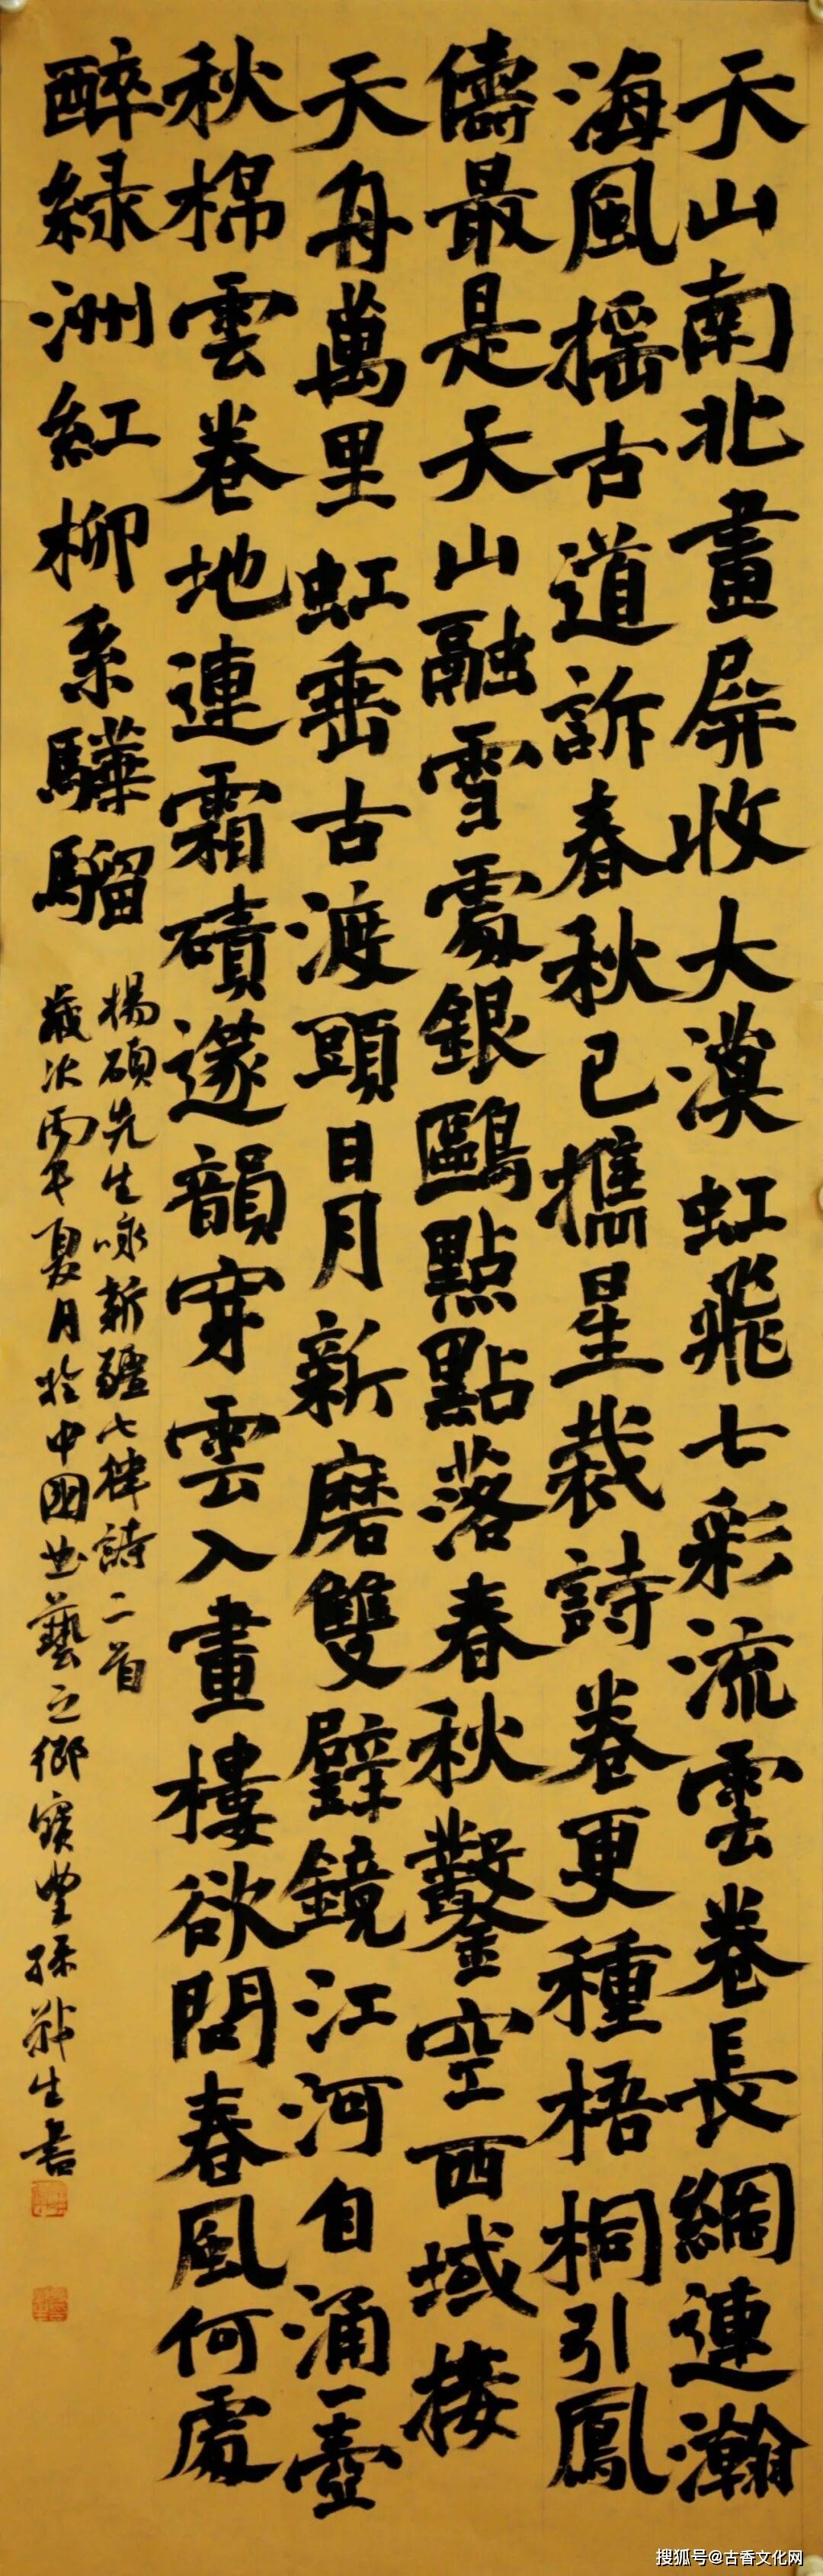 天山南北畫屏收大漠虹飛七彩流雲卷長綢連瀚
海風搖古道訴春秋已攜星裁詩卷更種梧桐引鳳
儔最是天山融雪處銀鷗點點落春秋鑿空西域接
天舟萬里虹垂古渡頭日月新磨雙璧鏡江河自涌壺
秋棉雲卷地連霜磧遂韻穿雲入畫樓欲問春風何處
醉綠洲紅柳系驊騮
楊碩先生咏新疆七律詩二首
歲次丙午夏月於中國書藝之鄉寶豐孫 生書
搜狐号@古香文化网